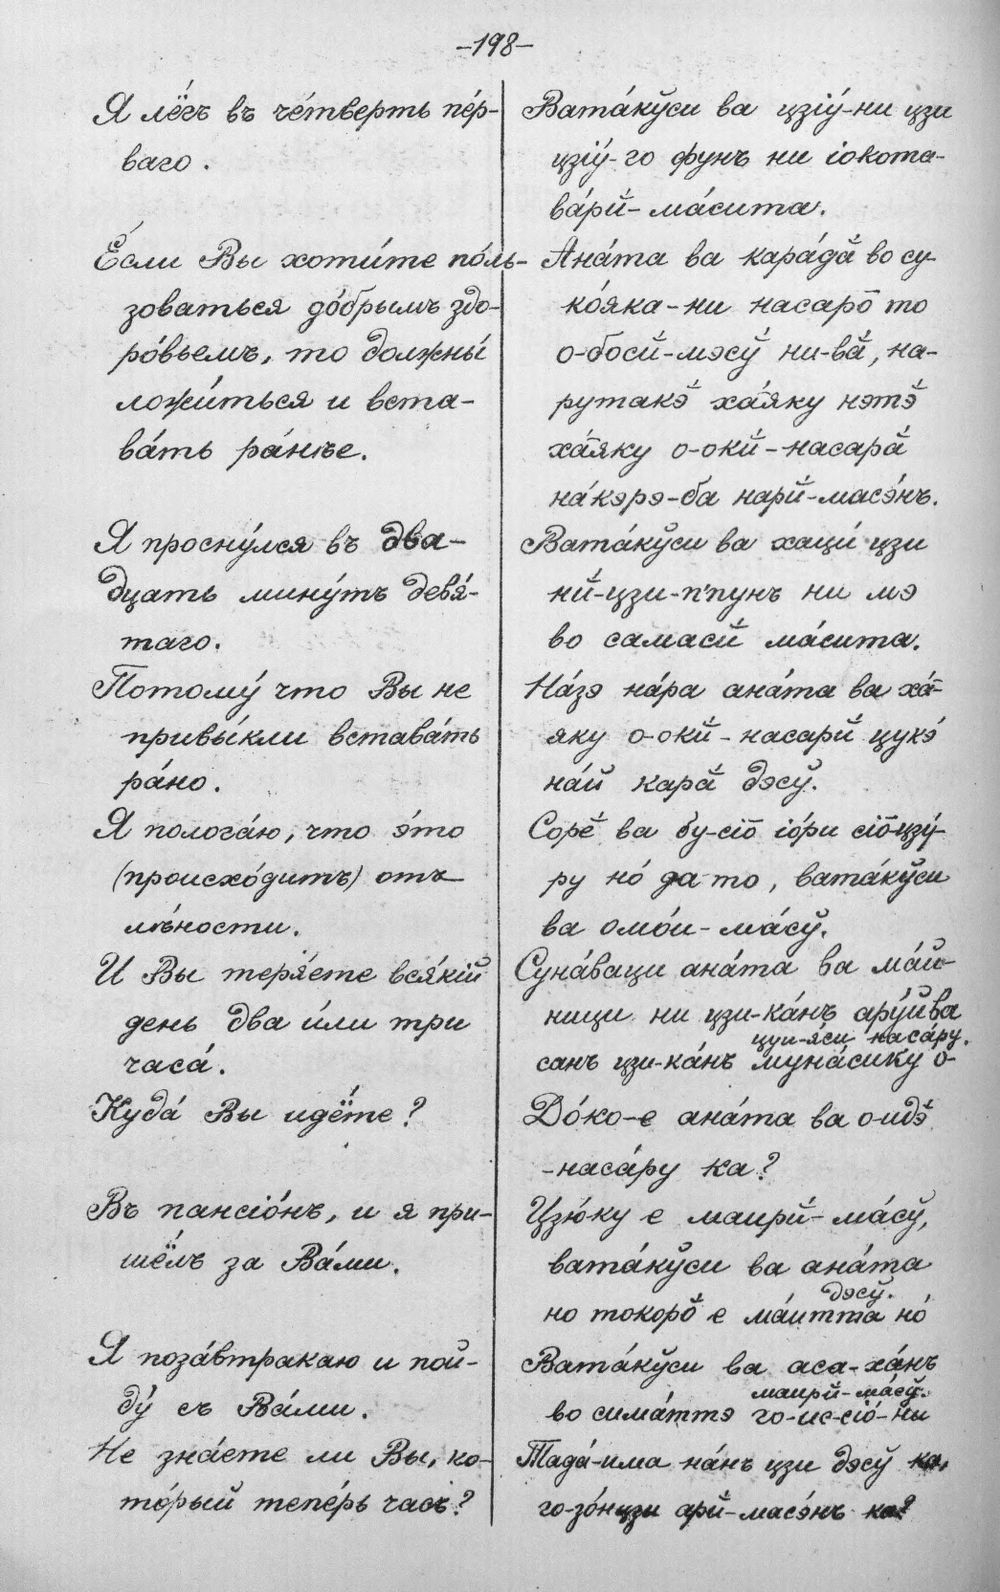 -198-
Я лёгъ въ че́тверть пе́р-
ваго.
Е́сли Вы хоти́те по́ль-
зоваться до́брымъ здо-
ро́вьемъ, то должны́
ложи́ться и вста-
ва́ть ра́нѣе.
Я просну́лся въ два-
дцать мину́тъ девя́-
таго.
Потому́ что Вы не
привы́кли встава́ть
ра́но.
Я полога́ю, что э́то
(происхо́дитъ) отъ
лѣ́ности.
И Вы теря́ете вся́кій
день два и́ли три
часа́.
Куда́ Вы идёте?
Въ пансіо́нъ, и я при-
шёлъ за Ва́ми.
Я поза́втракаю и пой-
ду́ съ Ва́ми.
Не зна́ете ли Вы, ко-
то́рый тепе́рь часъ?
Вата́кӯси ва цзіу́-ни цзи
цзіу́-го фунъ ни іокота-
ва́рй-ма́сита.
Ана́та ва кара́дӑ во су-
ко́яка-ни насаро̄ то
о-босй-мэсӯ ни-вӑ, на-
рутакэ̆ ха́яку нэтэ̆
ха́яку о-окй-насарӑ
на́кэрэ-ба нарй-масэ́нъ.
Вата́кӯси ва хаци́ цзи
нй-цзи-п'пунъ ни мэ
во самасй ма́сита.
На́зэ на́ра ана́та ва ха́-
яку о-окй-насарй цукэ́
на́й карӑ дэсӯ.
Сорё ва бу-сіо̄ іо́ри сіо̄-цзу́-
ру но́ да то, вата́кӯси
ва омо́и-ма́сӯ.
Суна́ваци ана́та ва ма́й-
ници ни цзи-ка́нъ ару́йва
цуи-я́си наса́ру.
санъ цзи-ка́нъ муна́сику о-
До́ко-е ана́та ва о-идэ̆
-наса́ру ка?
Цзю́ку е маирй-ма́сӯ,
вата́кӯси ва ана́та
дэсӯ.
но токоро̆ е ма́итта но́
Вата́кӯси ва аса-ха́нъ
маирй-ма́сӯ.
во сима́ттэ го-ис-сіо́-ни
Тада́-има на́нъ цзи дэсӯ ка,
го-зо́нцзи арй-масэ́нъ ка?